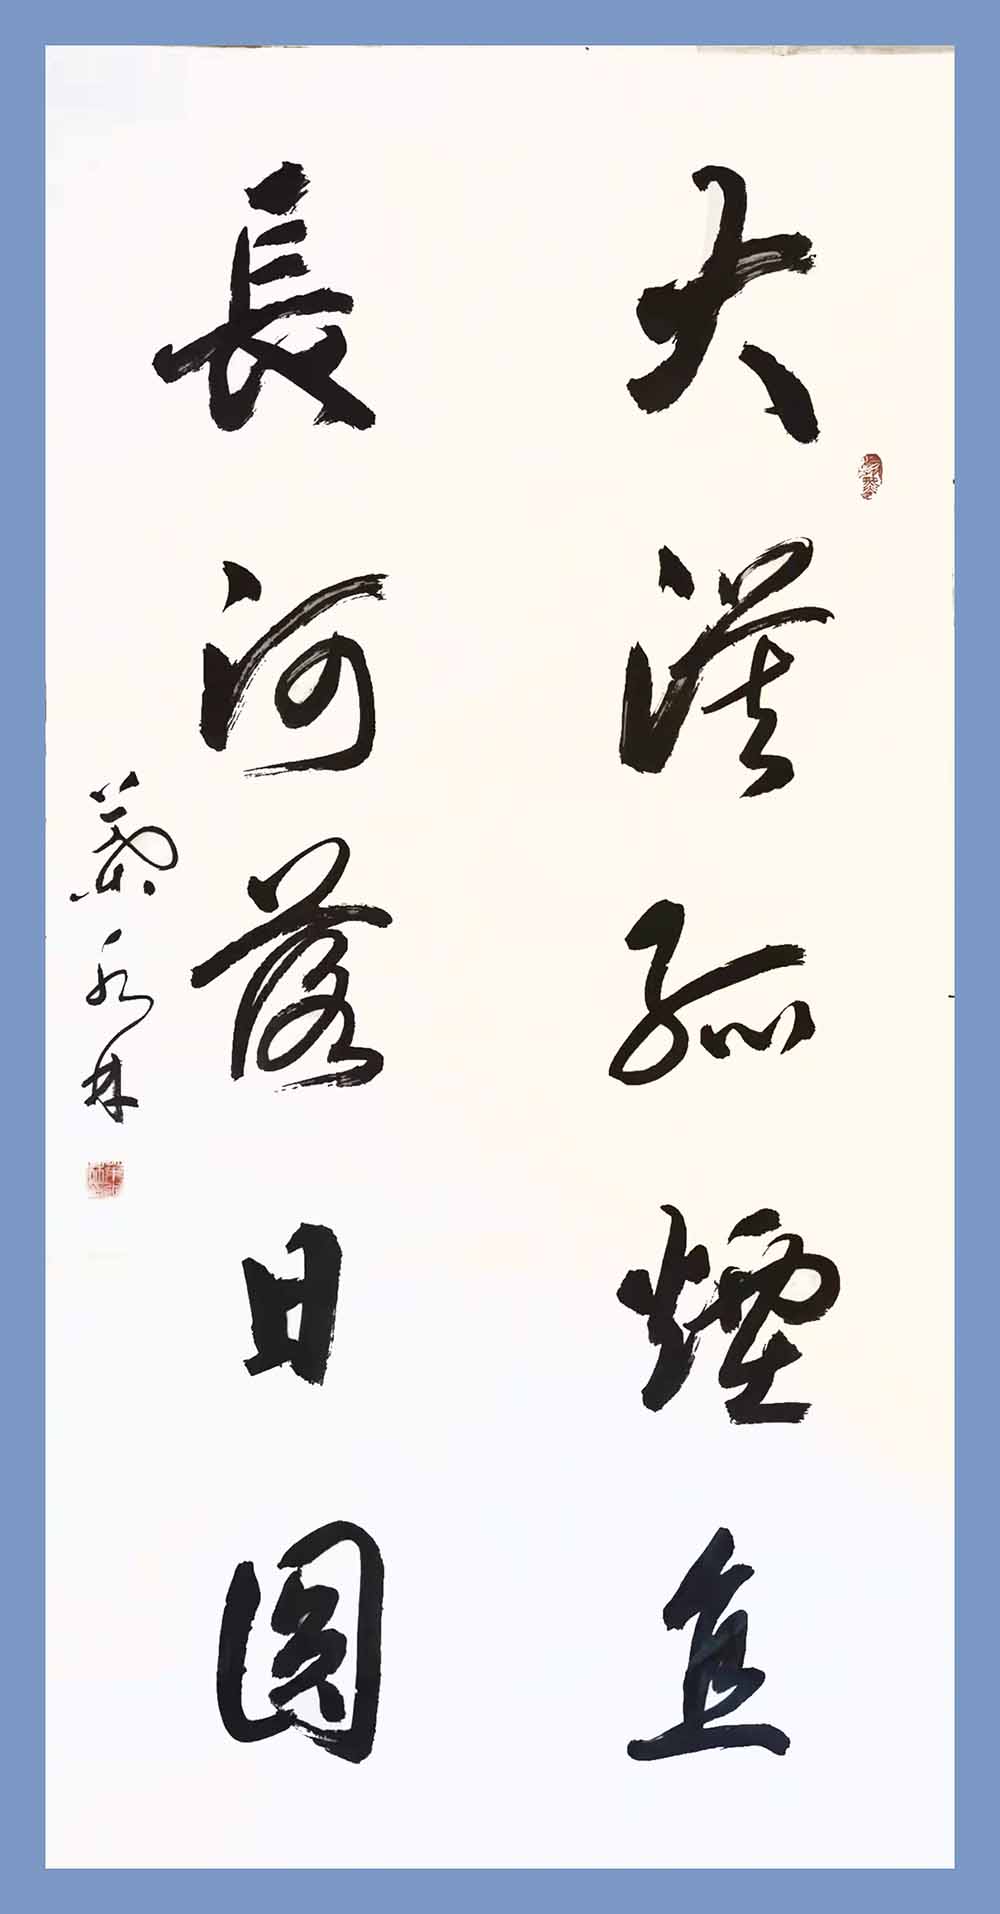 大漠孤煙直
長河落日圓
葉永林